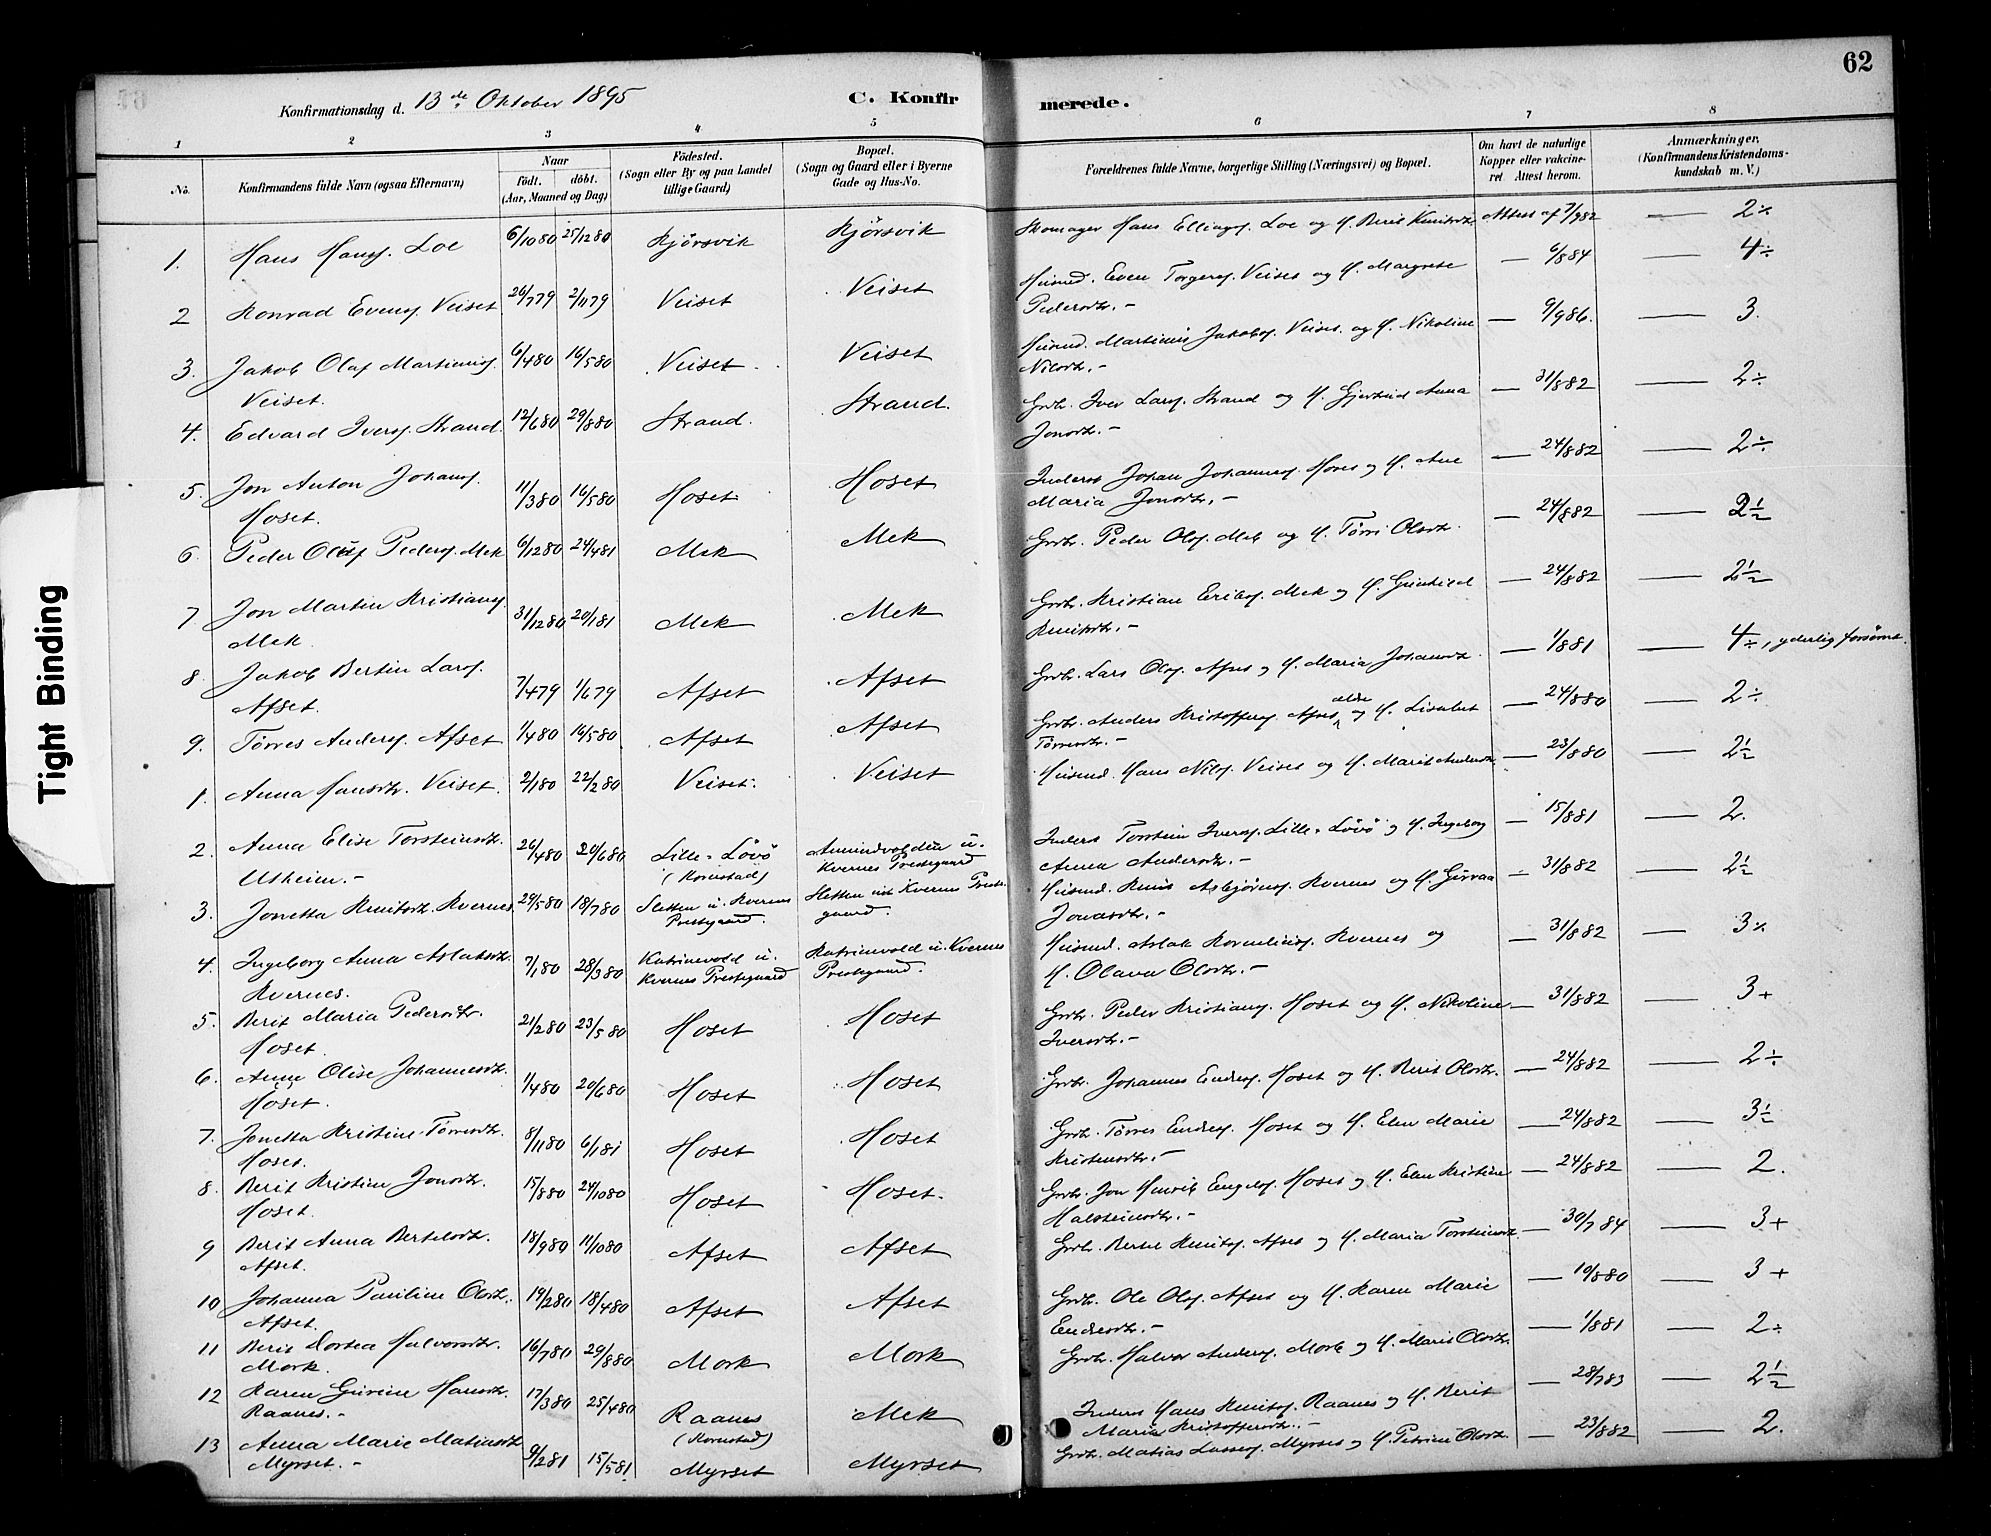 62
Konfirmationsdag d. 13de Oktober 1895 C. Konfirmerede.
1 2 3 4 5 6 7 8
No. Konfirmandens fulde Navn (ogsaa Efternavn) Naar födt. döbt. (Aar, Maaned og Dag) Födested. (Sogn eller By og paa Landet tillige Gaard) Bopæl. (Sogn og Gaard eller i Byerne Gade og Hus-No. Forældrenes fulde Navne, borgerlige Stilling (Næringsvei) og Bopæl. Om havt de naturlige Kopper eller vakcineret. Attest herom. Anmærkninger, (Konfirmandens Kristendomskundskab m. V.)
1. Hans Hanss. Loe 6/10 80 25/12 80 Kjörsvik Kjörsvik Skomager Hans Ellingss. Loe og H. Berit Knutsdtr. Attest af 7/9 82 — 2
2 Konrad Evens. Veiset 26/7 79 2/11 79 Veiset Veiset Husmd. Even Torgers. Veiset og H. Margrete Pedersdtr. — 6/8 84 — 4÷
3. Jakob Olaf Martinus. Veiset. 6/4 80 16/5 80 Veiset Veiset Husmd. Martinus Jakobs. Veiset og H. Nikoline Nilsdtr. — 9/9 86. — 3.
4. Edvard Ivers. Strand. 12/6 80 29/8 80 Strand. Strand. Grdb. Iver Lars. Strand og H. Gjertrud Anna Jonsdtr. — 31/8 82 — 2÷
5. Jon Anton Johans. Hoset. 11/3 80 16/5 80 Hoset Hoset Inderst Johan Johannes. Hoset og H. Ane Maria Jonsdtr. — 24/8 82 — 2÷
6. Peder Oluf Peders. Mek 6/12 80 24/4 81 Mek Mek Grdb. Peder Ols. Mek og H. Törri Olsdtr. — 24/8 82 — 2½
7 Jon Martin Kristians. Mek. 31/12 80 20/1 81 Mek Mek Grdb. Kristian Eriks. Mek og H. Gunhild Knutsdtr. — 24/8 82 — 2½
8 Jakob Bertin Lars. Afset. 7/4 79 1/6 79 Afset Afset Grdb. Lars Ols. Afset og H. Maria Johansdtr. — 1/8 81 — 4÷, yderlig forsømt.
9. Törres Anders. Afset 1/4 80 16/5 80 Afset Afset Grdb. Anders Kristoffers. Afset og H. Lisabet Törresdtr. — 24/8 80 — 2÷
1. Anna Hansdtr. Veiset. 2/1 80 22/2 80 Veiset. Veiset Husmd. Hans Nils. Veiset og H. Marit Andersdtr. — 23/8 80 — 2½
2. Anna Elise Torsteinsdtr. Utheim. 26/4 80 20/6 80 Lille-Lövö (Kornstad) u. Kvernes Prestegaard Inderst Torstein Ivers. Lille-Lövö og H. Ingeborg Anna Andersdtr. — 15/8 81 — 2.
3. Jonetta Knutsdtr. Kvernes. 29/5 80 18/7 80 Sletten u. Kvernes Prestgaard. Sletten u. Kvernes Prestegaard. Husmd. Knut Asbjörns. Kvernes og H. Guroa Jonasdtr. — 31/8 82 — 2½
4. Ingeborg Anna Aslaksdtr. Kvernes. 7/1 80 28/3 80 Katrinevold u. Kvernes Prestegaard Katrinevold u. Kvernes Prestegaard. Husmd. Aslak Kornelius. Kvernes og H. Olava Olsdtr. — 31/8 82 — 3
5. Berit Maria Pedersdtr. Hoset. 21/2 80 23/5 80 Hoset Hoset Grdb. Peder Kristians. Hoset og H. Nikoline Iversdtr. — 31/8 82 — 3+
6. Anne Olise Johannesdtr. Hoset. 1/4 80 20/6 80 Hoset Hoset Grdb. Johannes Enders. Hoset og H. Berit Olsdtr. — 24/8 82 — 2÷
7. Jonetta Kristine Törresdtr. Hoset. 8/11 80 6/1 81 Hoset Hoset Grdb. Törres Endres. Hoset og H. Elen Marie Kristensdtr. — 24/8 82 — 3½
8. Berit Kristine Jonsdtr. Hoset. 15/8 80 24/10 80 Hoset Hoset. Grdb. Jon Henrik Engels. Hoset og H. Elen Kristine Halsteinsdtr. — 24/8 82 — 2.
9 Berit Anna Bertelsdtr. Afset. 18/9 80 11/10 80 Afset Afset Grdb. Bertel Knuts. Afset og H. Maria Torsteinsdtr. — 30/7 84 — 3+
10 Johanna Pauline Olsdtr. Afset. 19/2 80 18/4 80 Afset Afset Grdb. Ole Ols. Afset og H. Karen Marie Endresdtr. — 19/8 80 — 3+
11 Berit Dortea Halvorsdtr. Mork. 16/7 80 29/8 80 Mork Mork Grdb. Halvor Anders. Mork og H. Marit Olsdtr. — 1/8 81 — 2÷
12 Karen Gurine Hansdtr. Raanes. 17/3 80 25/4 80 Raanes (Kornstad) Mek Inderst Hans Knuts. Raanes og H. Berit Maria Kristoffersdtr. — 28/7 83 — 2½
13 Anna Marie Matiasdtr. Myrset. 9/2 81 15/5 81 Myrset Myrset Grdb. Matias Lasses. Myrset og H. Petrine Olsdtr. — 23/8 82 — 2.
Tight Binding